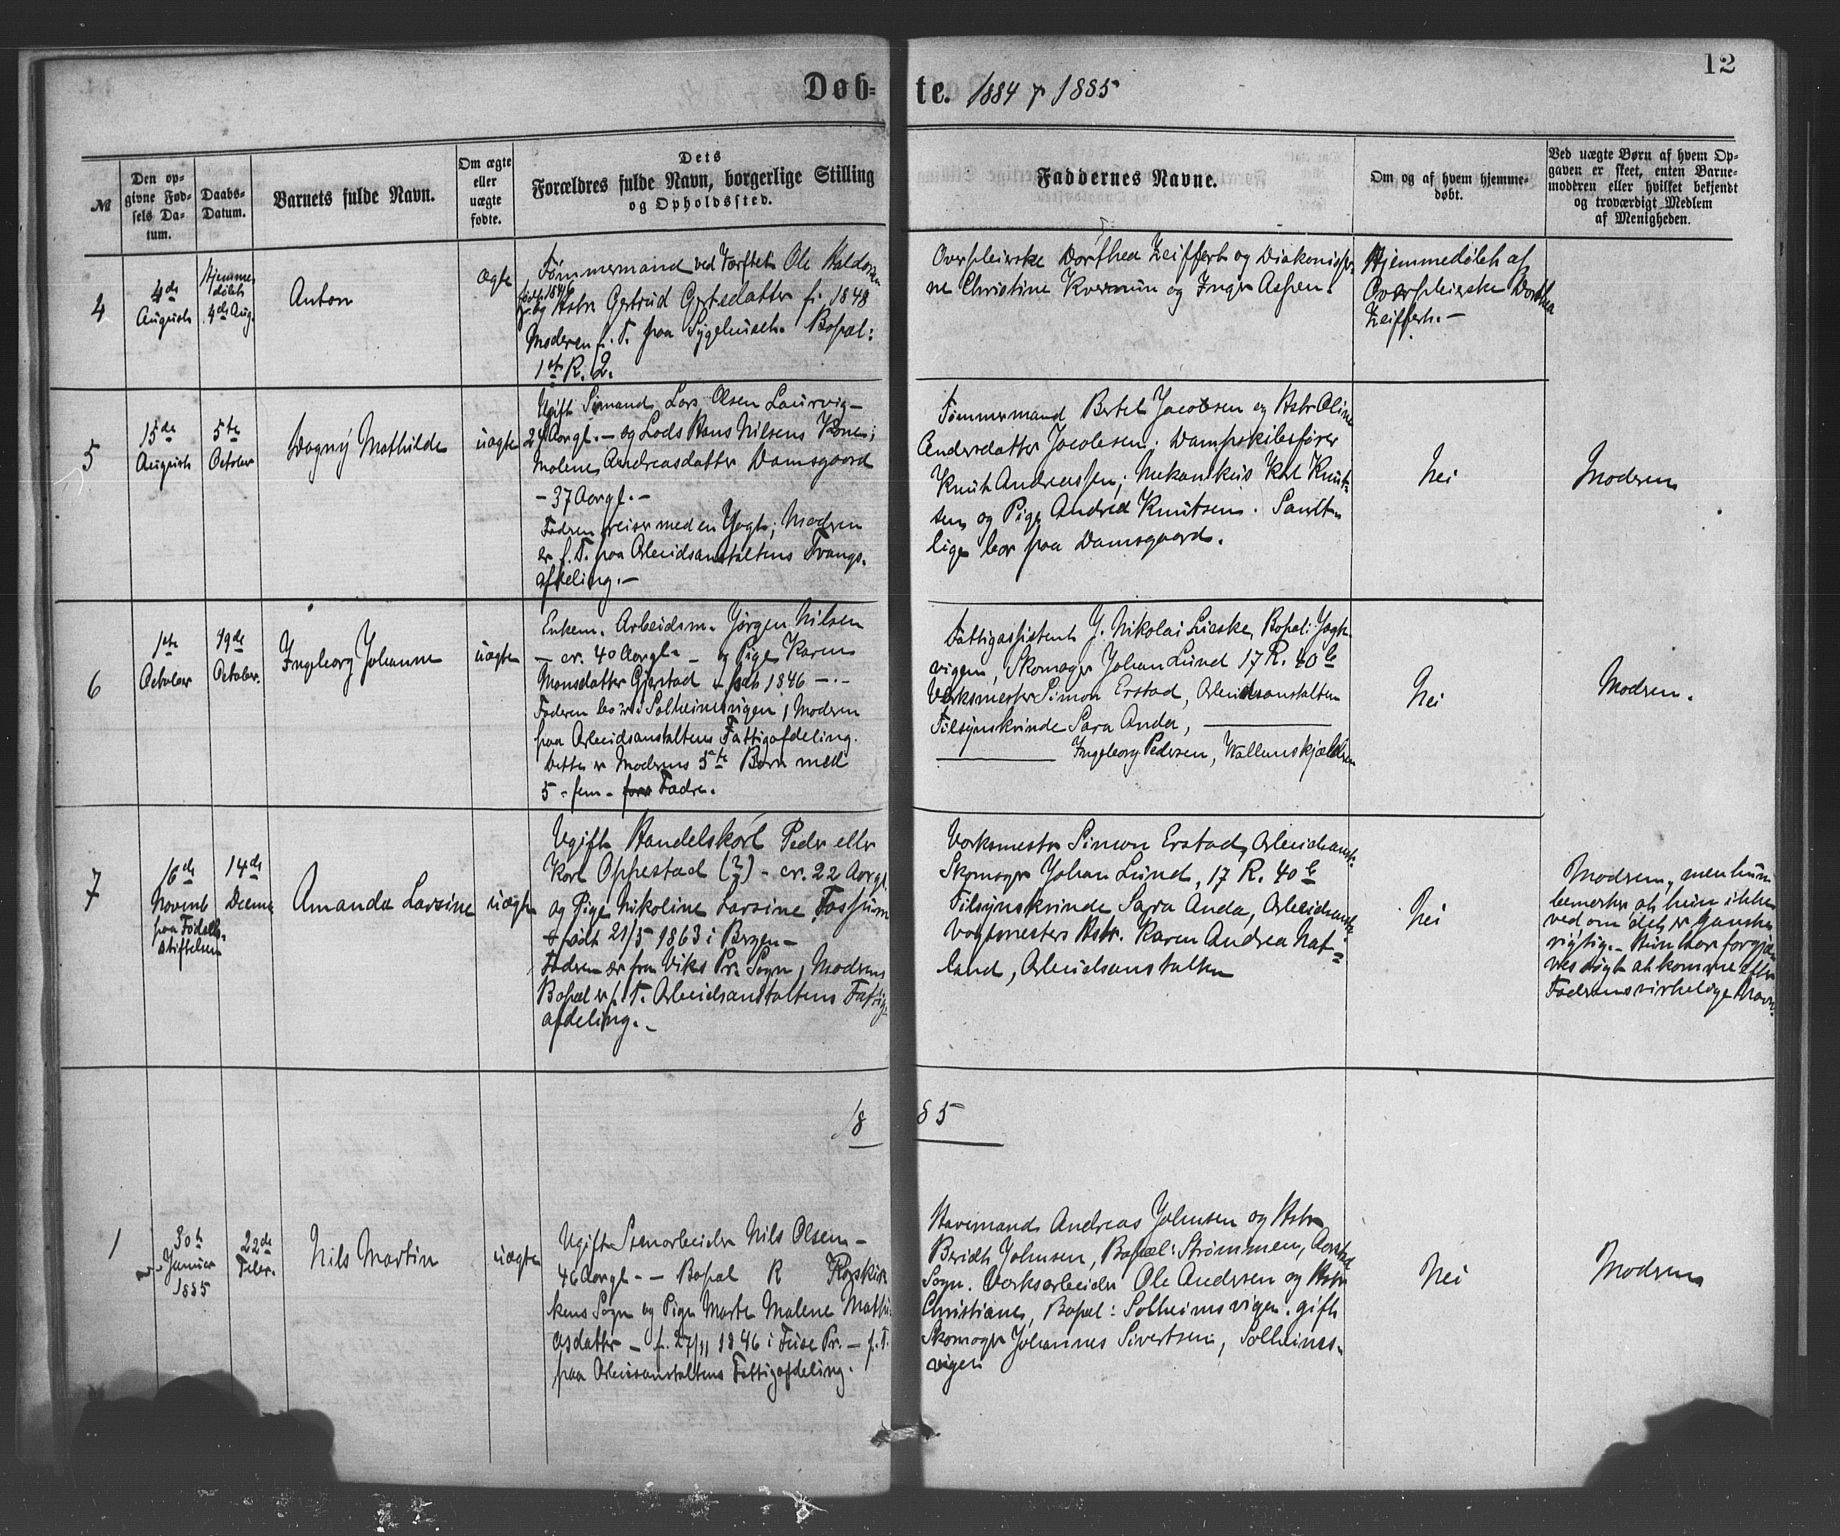 12
Døb= te. 1884 & 1885
№
Den op-
givne Fød-
sels Da-
tum.
Daabs-
Datum.
Barnets fulde Navn.
Om ægte
eller
uægte
fødte.
Dets
Forældres fulde Navn, borgerlige Stilling
og Opholdssted.
Faddernes Navne.
Om og af hvem hjemme-
døbt.
Ved uægte Børn af hvem Op-
gaven er skeet, enten Barne-
moderen eller hvilket bekjendt
og troværdigt Medlem
af Menigheden.
4
4de
August
Hjemme
døbt
4de Aug.
Anton
ægte
Tømmermand ved Værftet Ole Haldorsen
født 1846
og Hstr Gertrud Gjertsdatter f. 1848
Moderen p. T. paa Sygehuset. Bopæl:
1ste R. 2.
Overpleierske Dorthea Zeiffert og Diakonisser-
ne Christine Kvernum og Inger Aspen.
Hjemmedøbt af
Overpleierske Dorthea
Zeiffert. —
5
15de
August
5te
October
Dagny Mathilde
uægte
Ugift Sømand Lars Olsen Laurvig —
24 Aar gl. — og Lods Hans Nilsens Kone:
Malene Andreasdatter Damsgaard
— 37 Aar gl. —
Faderen reiser med en Jagt; Moderen
er p. T. paa Arbeidsanstaltens Tvangs-
afdeling. —
Tømmermand Bertel Jacobsen og Hstr Oline
Andersdatter Jacobsen. Dampskibsfører
Knut Andreassen; Mekanikus Karl Knut-
sen og Pige Andrea Knutsen. Samt-
lige bor paa Damsgaard.
Nei
Moderen
6
1ste
October
19de
October.
Ingeborg Johanne
uægte
Enkem. Arbeidsm. Jørgen Nilsen
— cr. 40 Aar gl. — og Pige Karen
Monsdatter Gjerstad — født 1846 —
Faderen bor i Solheimsvigen, Moderen
paa Arbeidsanstaltens Fattigafdeling.
Dette er Moderens 5te Barn med
5 - fem - Fædre.
Fattigassistent J. Nikolai Lieske, Bopæl: Jægte-
vigen, Skomager Johan Lund 17 R. 40 b
Værksmester Simon Erstad, Arbeidsanstalten
Tilsynskvinde Sara Anda, ———
——— Ingeborg Pedersen,
Nei
Moderen.
7
16de
Novemb
paa Fødsels-
stiftelsen
14de
Decemb
Amanda Larsine
uægte
Ugift Handelskarl Peder eller
Karl Oppestad (?) — cr. 22 Aar gl.
og Pige Nikoline Larsine Fossum
— født 21/5 1863 i Bergen —
Faderen er fra Viks Pr. Sogn, Moderens
Bopæl er p. T. Arbeidsanstaltens Fattig-
afdeling. —
Værksmester Simon Erstad, Arbeidsanst.
Skomager Johan Lund, 17 R. 40 b
Tilsynskvinde Sara Anda, Arbeidsanst.
Vagtmester Hstr. Karen Andrea Nat-
land, Arbeidsanstalten
Nei
Moderen, men hun
bemerker at hun ikke
ved om det er ganske
rigtigt. — Hun har forgjæ-
ves søgt at komme efter
Faderens virkelige Navn.
18 85
1
30te
Januar
1885
22de
Febr.
Nils Martin
uægte
Ugift Stenarbeider Nils Olsen —
46 Aar gl. — Bopæl R Korskir-
kens Sogn og Pige Marte Malene Mathi-
asdatter — f. 27/11 1846 i Fuse Pr. — p. T.
paa Arbeidsanstaltens Fattigafdeling.
Havnemand Andreas Johnsen og Hstr
Berith Johnsen, Bopæl: Strømmen, Aarstad
Sogn. Værksarbeider Ole Andersen og Hstr
Christiane, Bopæl: Solheimsvigen. gift
Skomager Johannes Sivertsen, Solheims-
vigen
Nei
Moderen